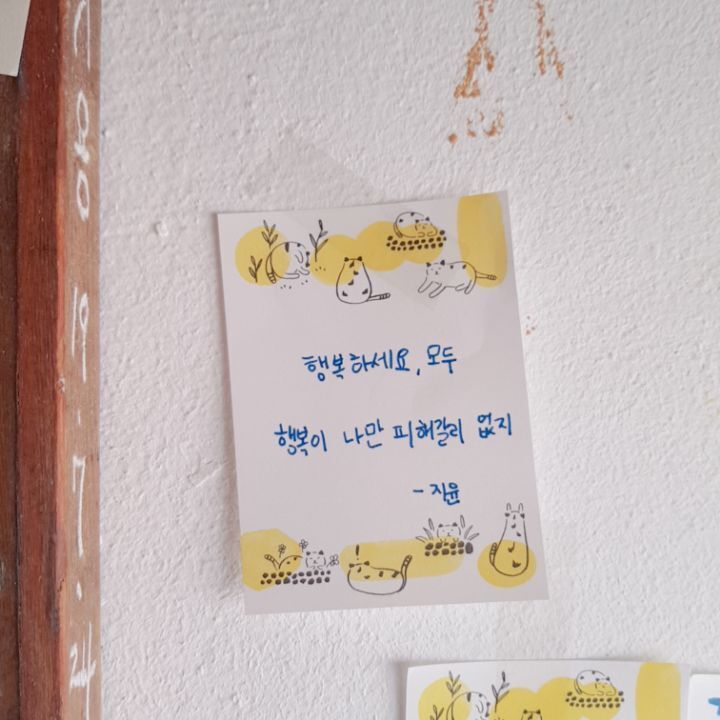 행복하세요, 모두
행복이 나만 피해갈리 없지
- 지윤
19.7.24